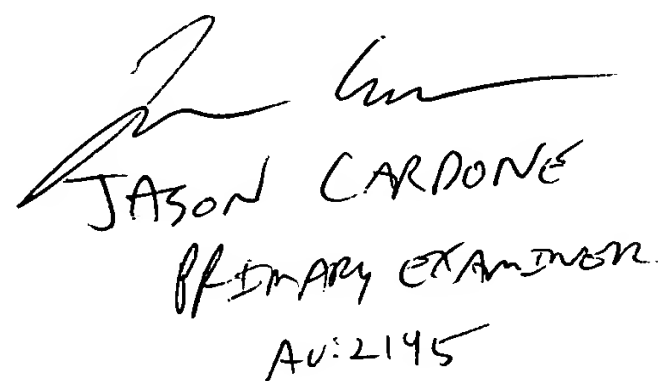 JASON CARDONE
PRIMARY EXAMINER
AU:2145